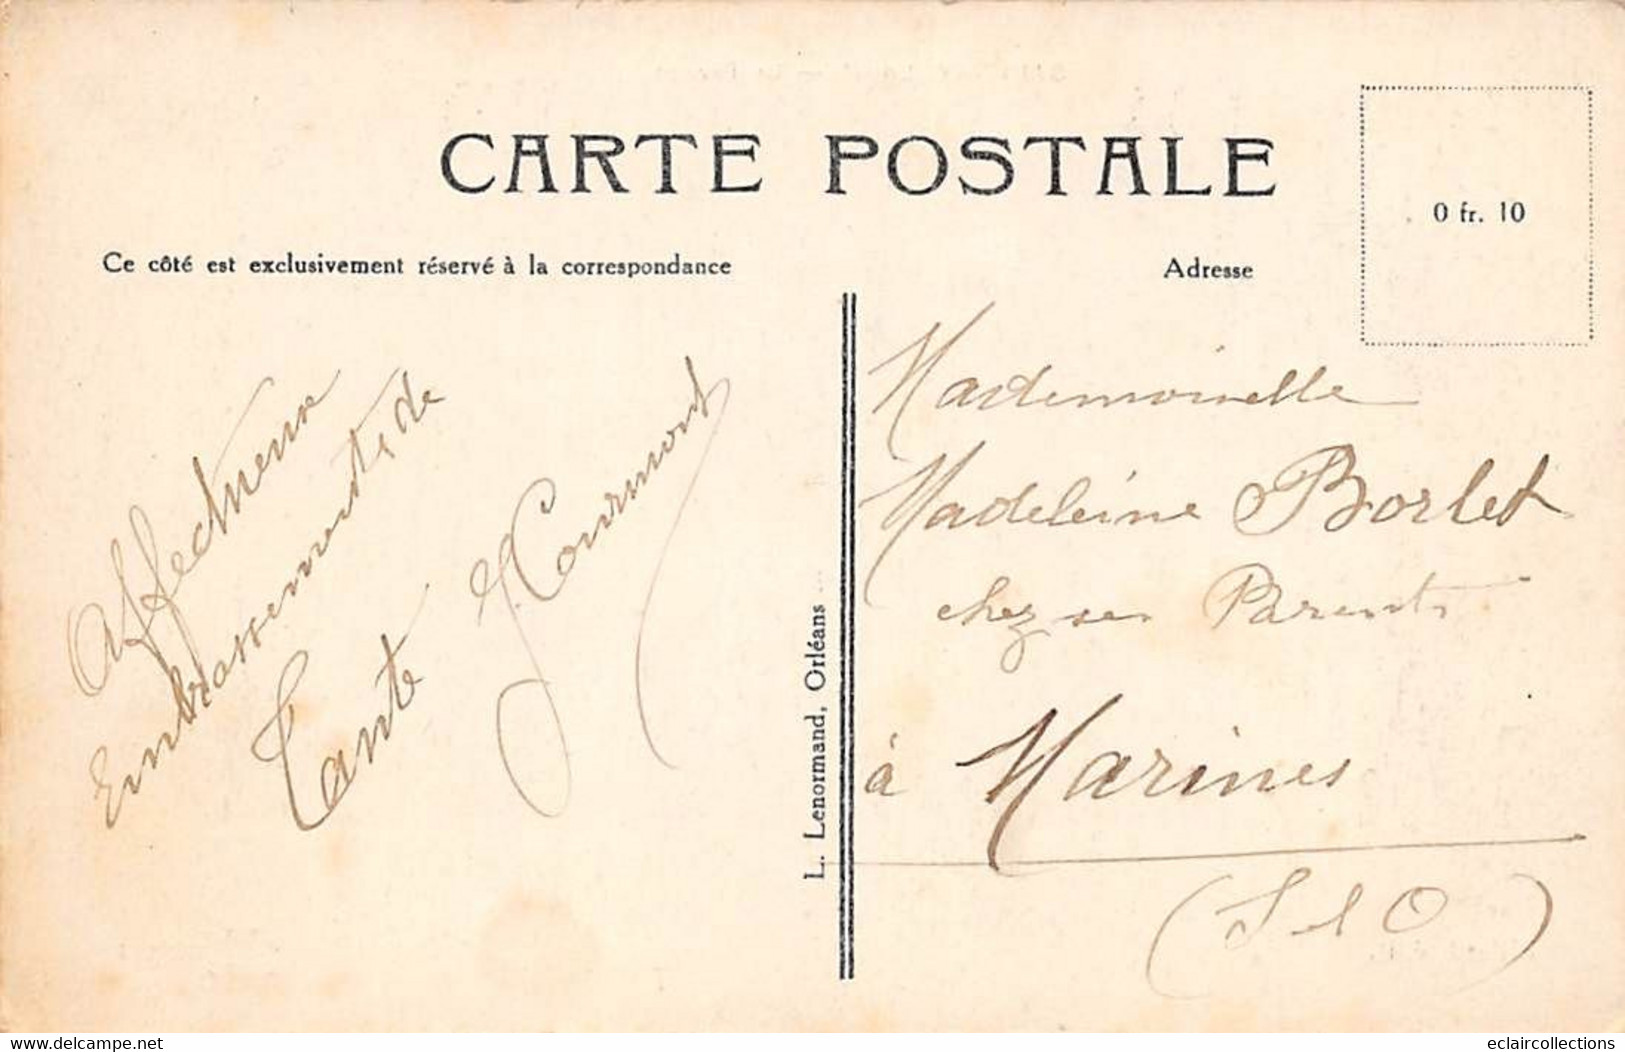 CARTE POSTALE
0 fr. 10
Ce côté est exclusivement réservé à la correspondance
Adresse
Affectueux
Embrassements de
Tante
J. Courmont
L. Lenormand, Orléans
Mademoiselle
Madeleine Borlet
chez ses Parents
à Marines
(S et O)
www.delcampe.net
eclaircollections